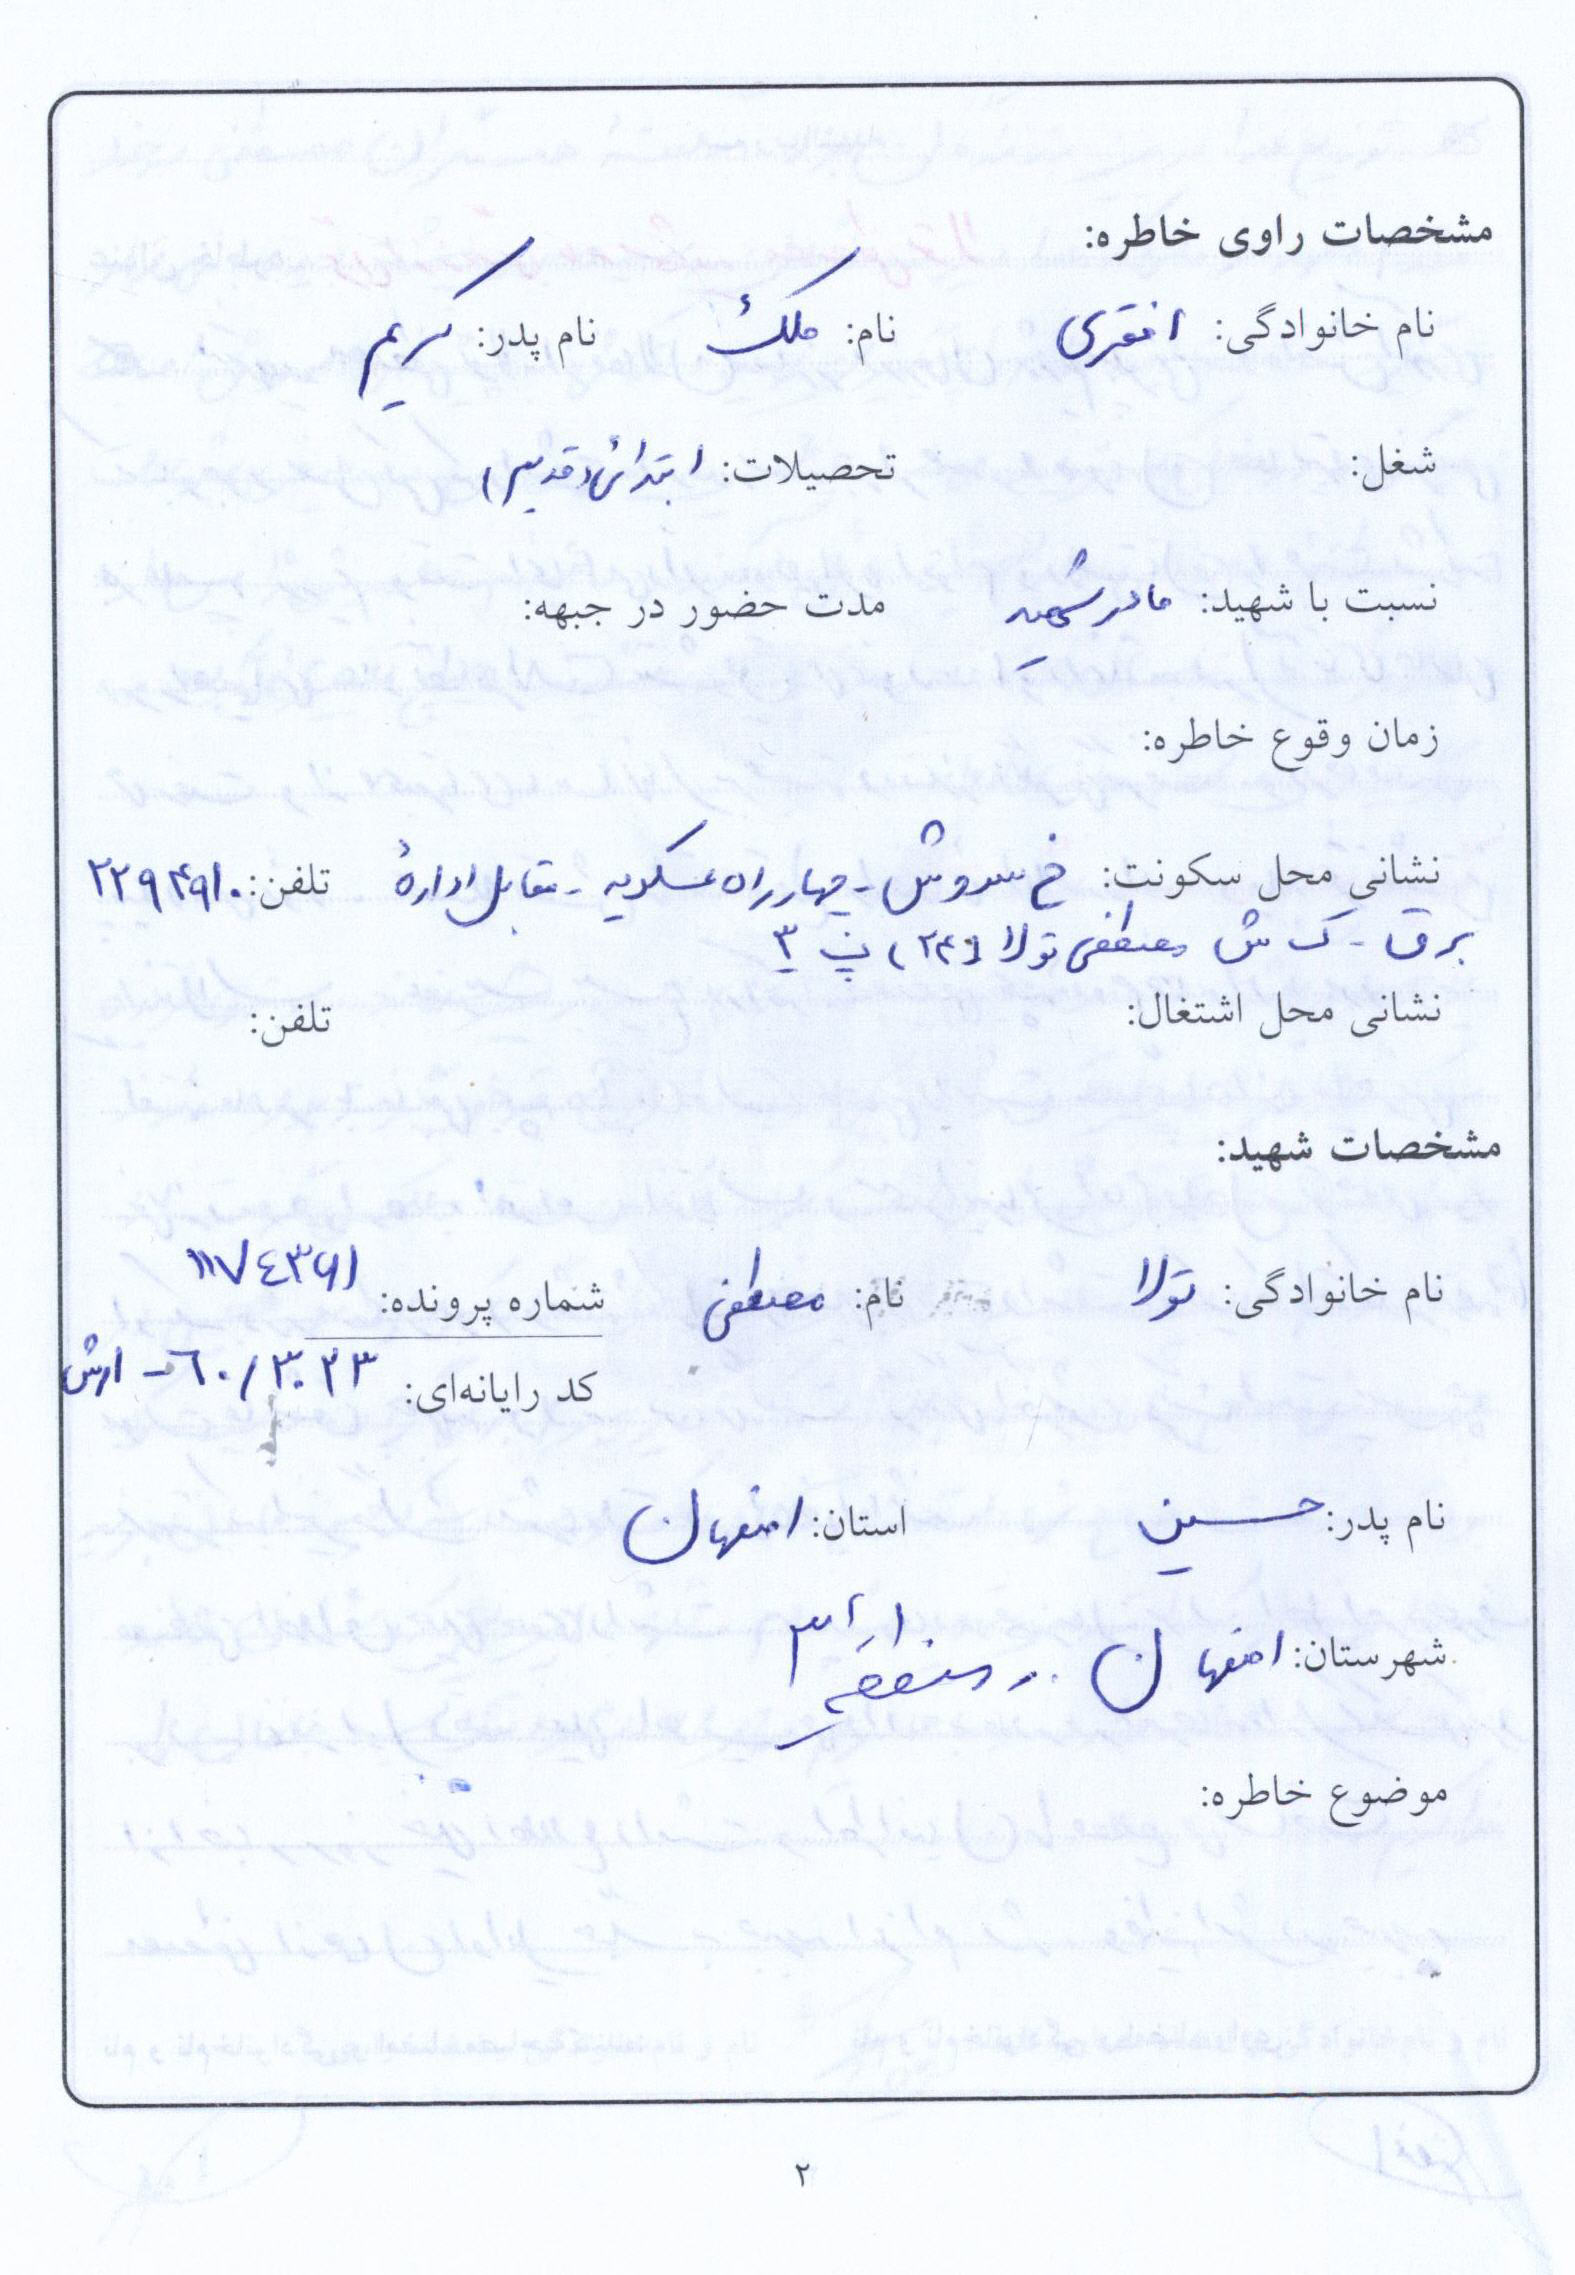 مشخصات راوی خاطره:
نام خانوادگی: افقری نام: ملک نام پدر: کریم
شغل: تحصیلات: ابتدائی (قدیم)
نسبت با شهید: مادر شهید مدت حضور در جبهه:
زمان وقوع خاطره:
نشانی محل سکونت: خ سروش - چهارراه عسکریه - مقابل اداره تلفن: ۲۲۹۴۹۱۰
برق - ک ش مصطفی تولا (۲۴) پ ۳
نشانی محل اشتغال: تلفن:
مشخصات شهید:
نام خانوادگی: تولا نام: مصطفی شماره پرونده: ۱۱۷۴۳۶۱
کد رایانه‌ای: ۶۰/۳۰۲۳ - ارتش
نام پدر: حسین استان: اصفهان
شهرستان: اصفهان .. منطقه ۳
موضوع خاطره:
۲